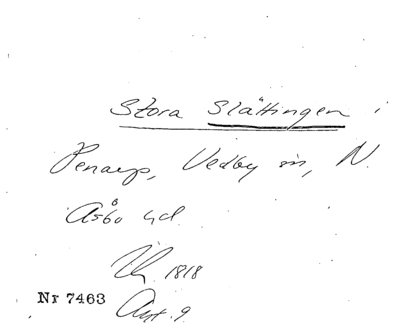 Stora Slättingen i
Penarp, Vedby sn, N.
Åsbo hd.
1818
Nr 7463
Akt. 9